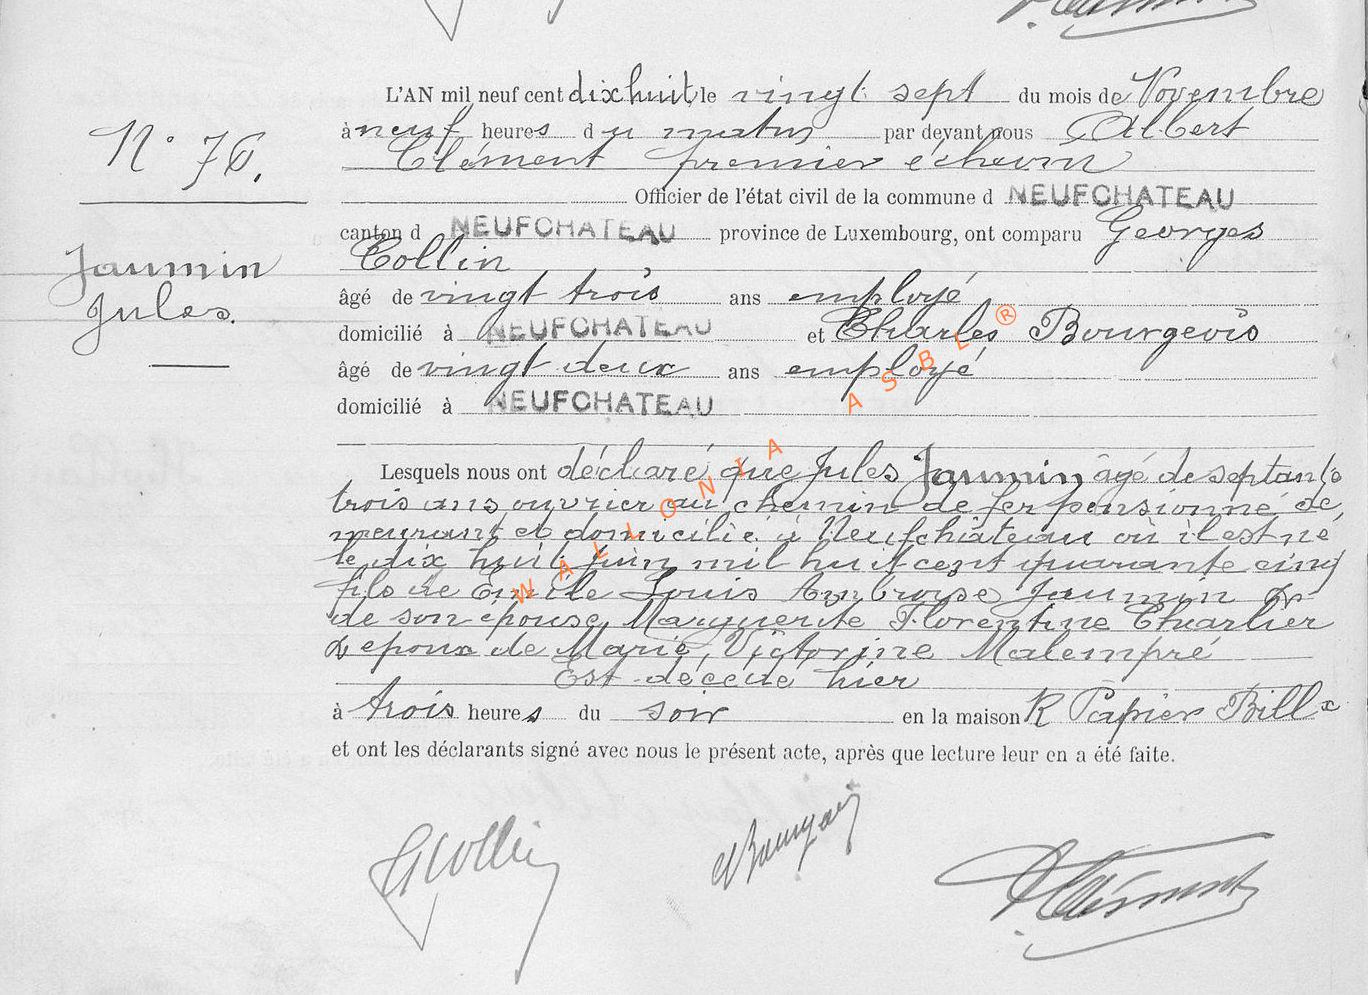 L'AN mil neuf cent dix huit le vingt sept du mois de Novembre
à neuf heures du matin par devant nous Albert
Clément premier échevin
N° 76.
Officier de l'état civil de la commune d NEUFCHATEAU
canton d NEUFCHATEAU province de Luxembourg, ont comparu Georges
Collin
Jaumin
Jules.
âgé de vingt trois ans employé
domicilié à NEUFCHATEAU et Charles Bourgeois
âgé de vingt deux ans employé
domicilié à NEUFCHATEAU
Lesquels nous ont déclaré que Jules Jaumin âgé de septante
trois ans ouvrier au chemin de fer pensionné de
meurant et domicilié à Neufchâteau où il est né
le dix huit juin mil huit cent quarante cinq
fils de Emile Louis Ambroise Jaumin &
de son épouse Marguerite Florentine Charlier
& epoux de Marie, Victorine Malempré
Est décédé hier
à trois heures du soir en la maison R Papier Bill
et ont les déclarants signé avec nous le présent acte, après que lecture leur en a été faite.
GCollin
Clément
WALLONIA ASBL ®